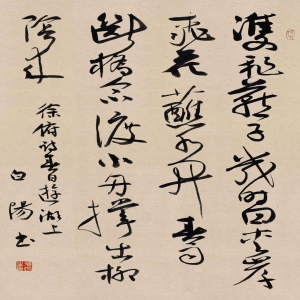 雙飛燕子幾時回夾岸
桃花蘸水開春雨
斷橋人不渡小舟撐出柳
陰來
徐俯詩春日遊湖上
白陽書